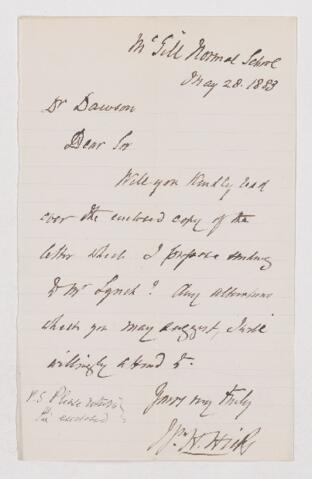 McGill Normal School
May 28. 1883
Dr Dawson
Dear Sir
Will you kindly read
over the enclosed copy of the
letter which I propose sending
to Mr Lynch? Any alterations
which you may suggest, I will
willingly attend to.
Yours very truly
Jn. H. Hicks
P.S. Please return
the enclosed